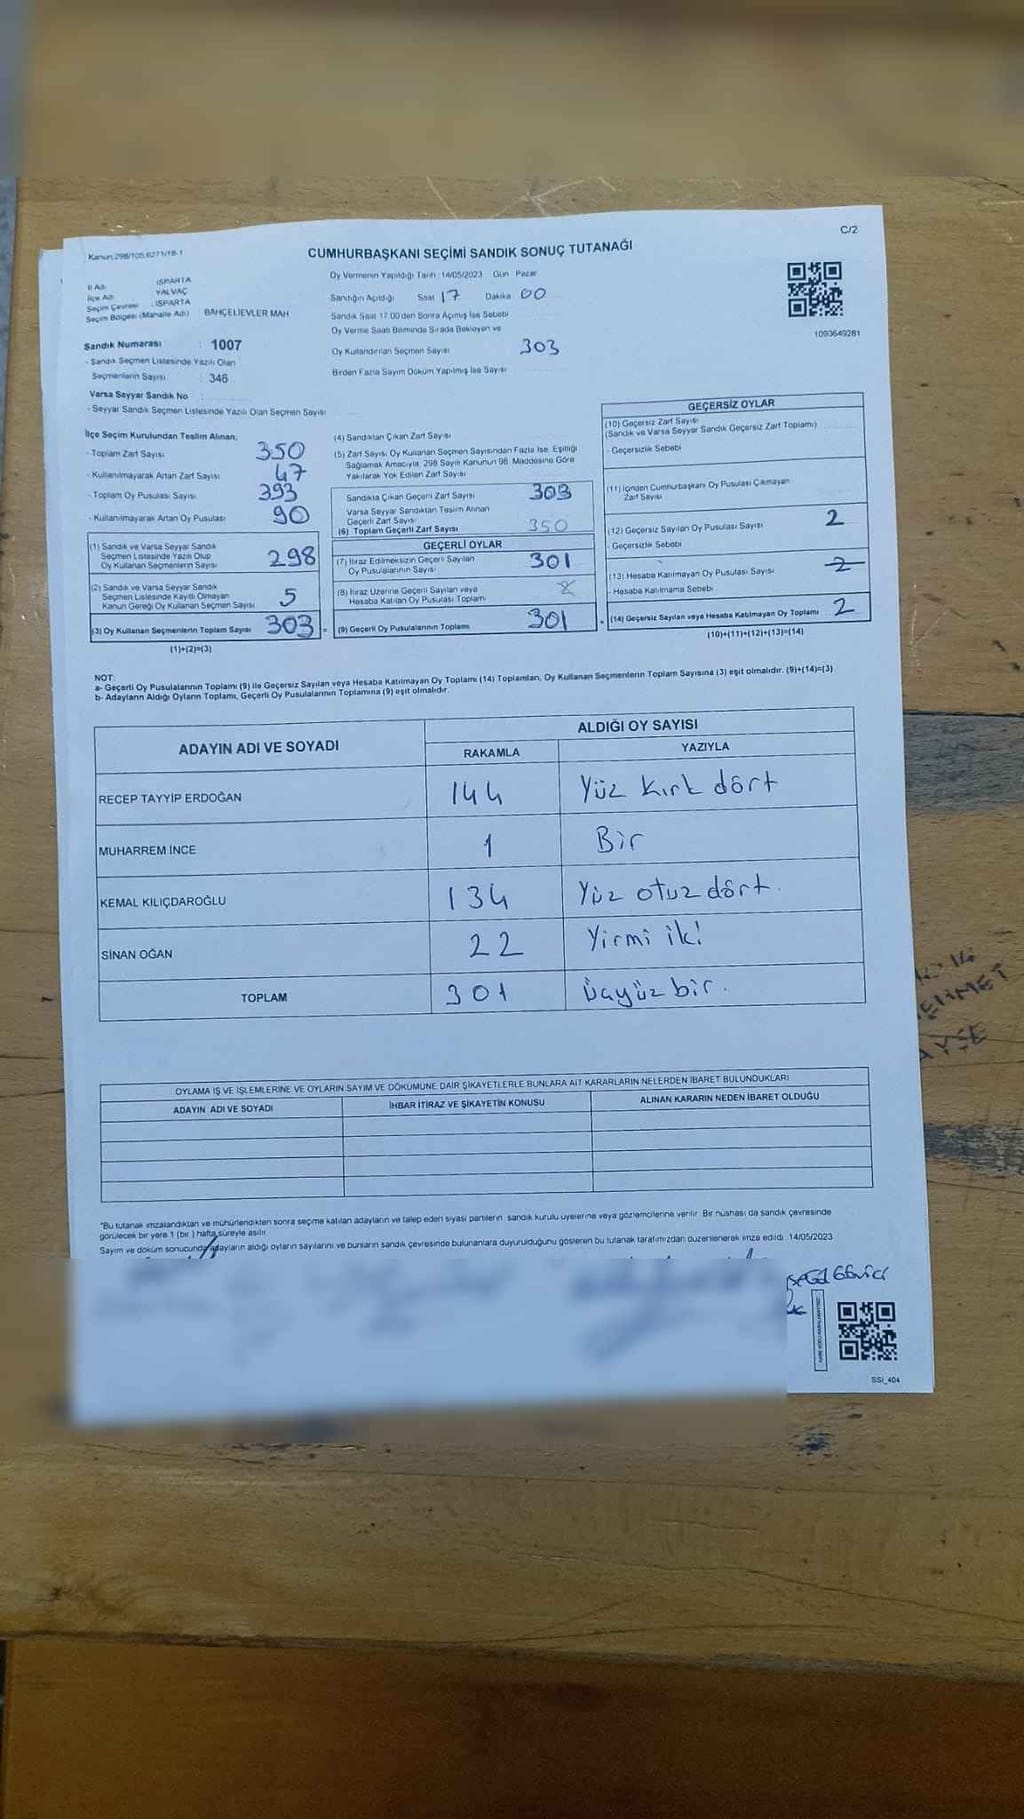 C/2
Kanun:298/105,6271/18-1
CUMHURBAŞKANI SEÇİMİ SANDIK SONUÇ TUTANAĞI
İl Adı : ISPARTA
İlçe Adı : YALVAÇ
Seçim Çevresi : ISPARTA
Seçim Bölgesi (Mahalle Adı) : BAHÇELİEVLER MAH
Sandık Numarası : 1007
- Sandık Seçmen Listesinde Yazılı Olan
Seçmenlerin Sayısı : 346
Varsa Seyyar Sandık No :
- Seyyar Sandık Seçmen Listesinde Yazılı Olan Seçmen Sayısı
Oy Vermenin Yapıldığı Tarih :14/05/2023 Gün : Pazar
Sandığın Açıldığı Saat 17 Dakika 00
Sandık Saat 17:00'den Sonra Açılmış İse Sebebi
Oy Verme Saati Bitiminde Sırada Bekleyen ve
Oy Kullandırılan Seçmen Sayısı 303
Birden Fazla Sayım Döküm Yapılmış İse Sayısı
1093649281
İlçe Seçim Kurulundan Teslim Alınan;
- Toplam Zarf Sayısı 350
- Kullanılmayarak Artan Zarf Sayısı 47
- Toplam Oy Pusulası Sayısı 393
- Kullanılmayarak Artan Oy Pusulası 90
(1) Sandık ve Varsa Seyyar Sandık
Seçmen Listesinde Yazılı Olup
Oy Kullanan Seçmenlerin Sayısı 298
(2) Sandık ve Varsa Seyyar Sandık
Seçmen Listesinde Kayıtlı Olmayan
Kanun Gereği Oy Kullanan Seçmen Sayısı 5
(3) Oy Kullanan Seçmenlerin Toplam Sayısı 303
(1)+(2)=(3)
(4) Sandıktan Çıkan Zarf Sayısı
(5) Zarf Sayısı Oy Kullanan Seçmen Sayısından Fazla İse, Eşitliği
Sağlamak Amacıyla, 298 Sayılı Kanunun 98. Maddesine Göre
Yakılarak Yok Edilen Zarf Sayısı
Sandıkta Çıkan Geçerli Zarf Sayısı 303
Varsa Seyyar Sandıktan Teslim Alınan
Geçerli Zarf Sayısı
(6) Toplam Geçerli Zarf Sayısı 350
GEÇERLİ OYLAR
(7) İtiraz Edilmeksizin Geçerli Sayılan
Oy Pusulalarının Sayısı 301
(8) İtiraz Üzerine Geçerli Sayılan veya
Hesaba Katılan Oy Pusulası Toplamı
= (9) Geçerli Oy Pusulalarının Toplamı 301
GEÇERSİZ OYLAR
(10) Geçersiz Zarf Sayısı
(Sandık ve Varsa Seyyar Sandık Geçersiz Zarf Toplamı)
- Geçersizlik Sebebi
(11) İçinden Cumhurbaşkanı Oy Pusulası Çıkmayan
Zarf Sayısı
(12) Geçersiz Sayılan Oy Pusulası Sayısı 2
- Geçersizlik Sebebi
(13) Hesaba Katılmayan Oy Pusulası Sayısı 2
- Hesaba Katılmama Sebebi
+ (14) Geçersiz Sayılan veya Hesaba Katılmayan Oy Toplamı 2
(10)+(11)+(12)+(13)=(14)
NOT:
a- Geçerli Oy Pusulalarının Toplamı (9) ile Geçersiz Sayılan veya Hesaba Katılmayan Oy Toplamı (14) Toplamları, Oy Kullanan Seçmenlerin Toplam Sayısına (3) eşit olmalıdır. (9)+(14)=(3)
b- Adayların Aldığı Oyların Toplamı, Geçerli Oy Pusulalarının Toplamına (9) eşit olmalıdır.
ADAYIN ADI VE SOYADI
ALDIĞI OY SAYISI
RAKAMLA YAZIYLA
RECEP TAYYİP ERDOĞAN 144 Yüz kırk dört
MUHARREM İNCE 1 Bir
KEMAL KILIÇDAROĞLU 134 Yüz otuz dört.
SİNAN OĞAN 22 Yirmi iki
TOPLAM 301 Üçyüz bir.
OYLAMA İŞ VE İŞLEMLERİNE VE OYLARIN SAYIM VE DÖKÜMÜNE DAİR ŞİKAYETLERLE BUNLARA AİT KARARLARIN NELERDEN İBARET BULUNDUKLARI
ADAYIN ADI VE SOYADI İHBAR İTİRAZ VE ŞİKAYETİN KONUSU ALINAN KARARIN NEDEN İBARET OLDUĞU
*Bu tutanak imzalandıktan ve mühürlendikten sonra seçime katılan adayların ve talep eden siyasi partilerin sandık kurulu üyelerine veya gözlemcilerine verilir. Bir nüshası da sandık çevresinde
görülecek bir yere 1 (bir ) hafta süreyle asılır.
Sayım ve döküm sonucunda adayların aldığı oyların sayılarını ve bunların sandık çevresinde bulunanlara duyurulduğunu gösteren bu tutanak tarafımızdan düzenlenerek imza edildi. 14/05/2023
SSI_404
MEHMET
AYŞE